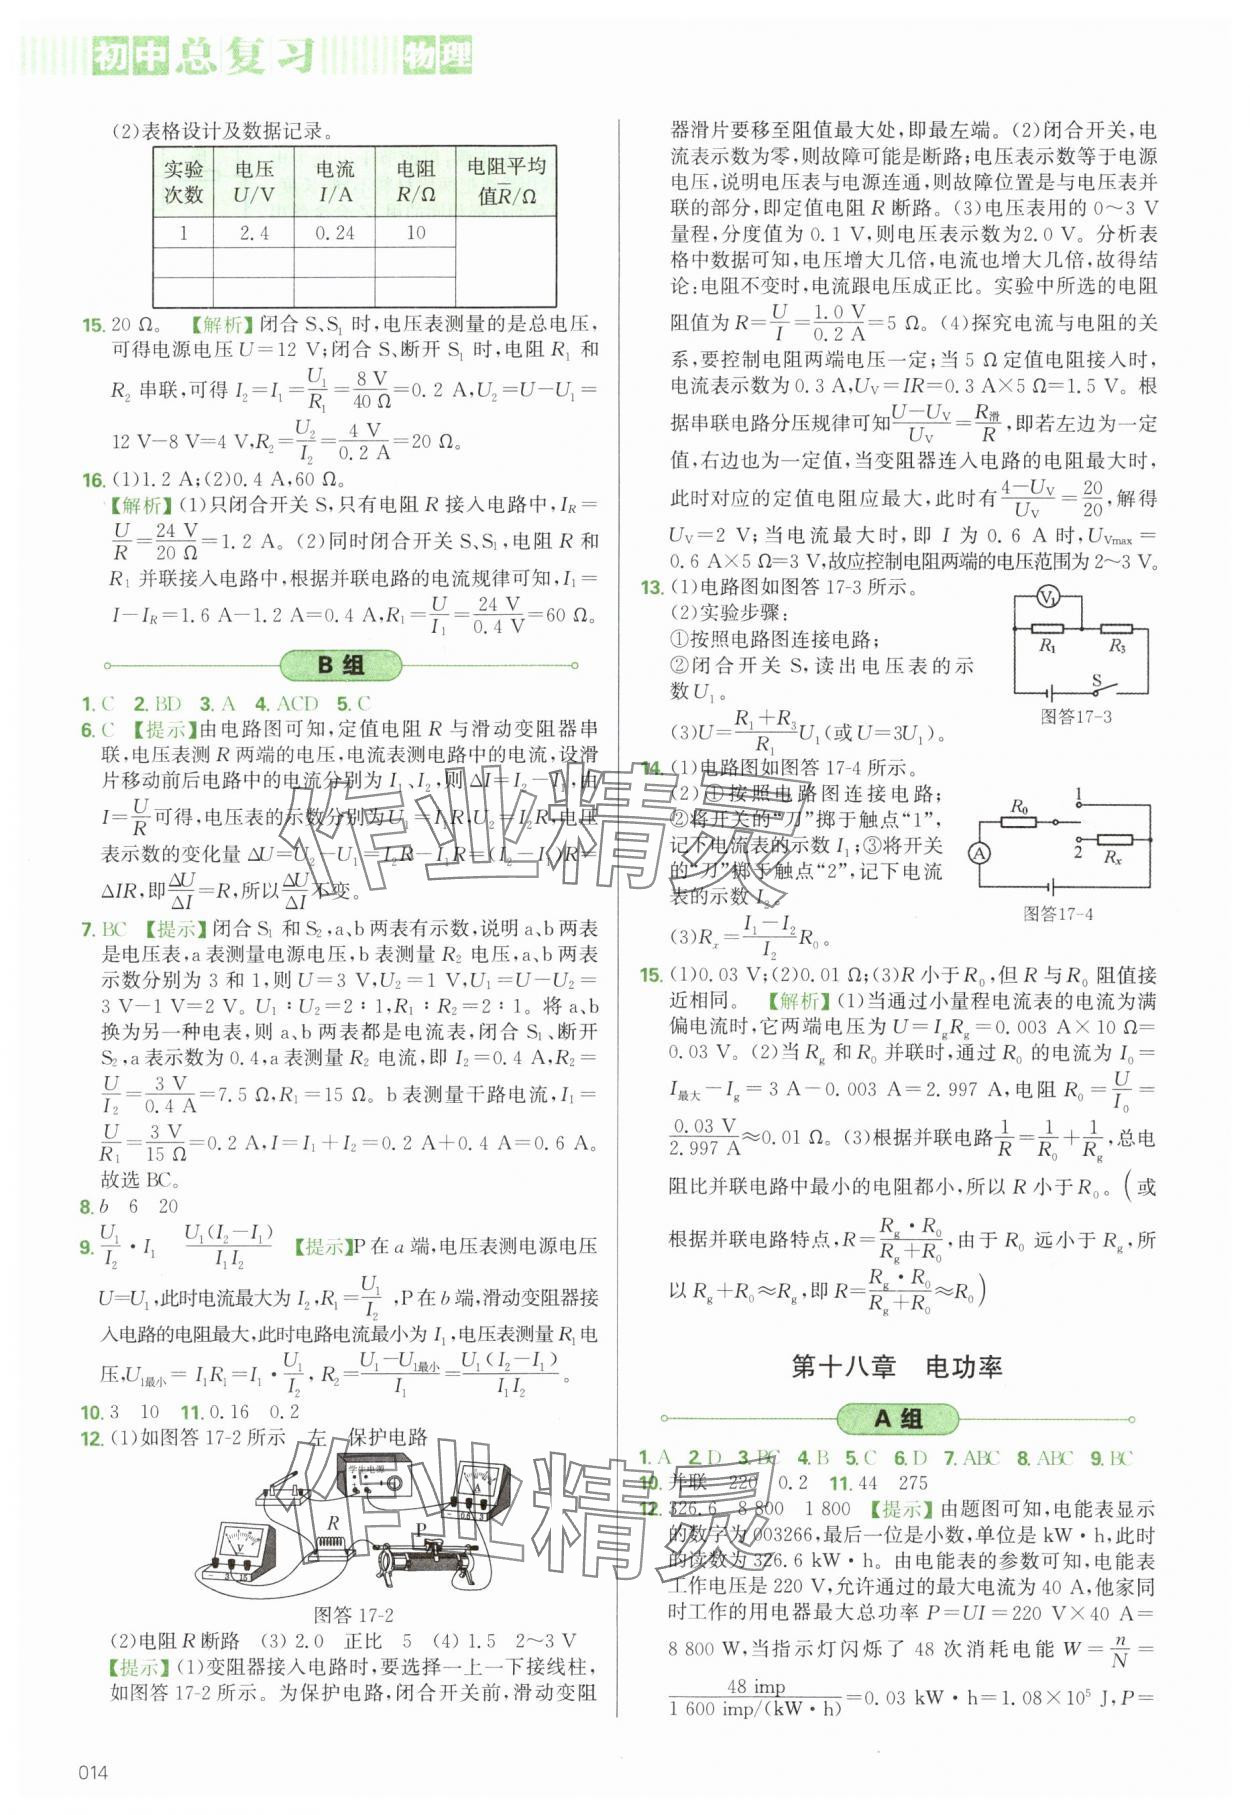 初中总复习 物理
(2)表格设计及数据记录。
实验次数 电压U/V 电流I/A 电阻R/Ω 电阻平均值R̄/Ω
1 2.4 0.24 10
15. 20 Ω。 【解析】闭合 S、S₁ 时,电压表测量的是总电压,
可得电源电压 U=12 V;闭合 S、断开 S₁ 时,电阻 R₁ 和
R₂ 串联,可得 I₂=I₁=U₁/R₁=8 V/40 Ω=0.2 A,U₂=U-U₁=
12 V-8 V=4 V,R₂=U₂/I₂=4 V/0.2 A=20 Ω。
16. (1)1.2 A;(2)0.4 A,60 Ω。
【解析】(1)只闭合开关 S,只有电阻 R 接入电路中,I_R=
U/R=24 V/20 Ω=1.2 A。(2)同时闭合开关 S、S₁,电阻 R 和
R₁ 并联接入电路中,根据并联电路的电流规律可知,I₁=
I-I_R=1.6 A-1.2 A=0.4 A,R₁=U/I₁=24 V/0.4 V=60 Ω。
B 组
1. C 2. BD 3. A 4. ACD 5. C
6. C 【提示】由电路图可知,定值电阻 R 与滑动变阻器串
联,电压表测 R 两端的电压,电流表测电路中的电流,设滑
片移动前后电路中的电流分别为 I₁、I₂,则 ΔI=I₂-I₁,由
I=U/R可得,电压表的示数分别为U₁=I₁R,U₂=I₂R,电压
表示数的变化量 ΔU=U₂-U₁=I₂R-I₁R=(I₂-I₁)R=
ΔIR,即ΔU/ΔI=R,所以ΔU/ΔI不变。
7. BC 【提示】闭合 S₁ 和 S₂,a、b 两表有示数,说明 a、b 两表
是电压表,a 表测量电源电压,b 表测量 R₂ 电压,a、b 两表
示数分别为 3 和 1,则 U=3 V,U₂=1 V,U₁=U-U₂=
3 V-1 V=2 V。U₁∶U₂=2∶1,R₁∶R₂=2∶1。将 a、b
换为另一种电表,则 a、b 两表都是电流表,闭合 S₁、断开
S₂,a 表示数为 0.4,a 表测量 R₂ 电流,即 I₂=0.4 A,R₂=
U/I₂=3 V/0.4 A=7.5 Ω,R₁=15 Ω。b 表测量干路电流,I₁=
U/R₁=3 V/15 Ω=0.2 A,I=I₁+I₂=0.2 A+0.4 A=0.6 A。
故选 BC。
8. b 6 20
9. U₁/I₂·I₁ U₁(I₂-I₁)/I₁I₂ 【提示】P 在 a 端,电压表测电源电压
U=U₁,此时电流最大为 I₂,R₁=U₁/I₂,P 在 b 端,滑动变阻器接
入电路的电阻最大,此时电路电流最小为 I₁,电压表测量 R₁ 电
压,U₁最小=I₁R₁=I₁·U₁/I₂,R=(U₁-U₁最小)/I₁=U₁(I₂-I₁)/I₁I₂。
10. 3 10 11. 0.16 0.2
12. (1)如图答 17-2 所示 左 保护电路
学生电源
A
- 0.6 3
V
- 3 15
R
P
图答 17-2
(2)电阻 R 断路 (3) 2.0 正比 5 (4) 1.5 2~3 V
【提示】(1)变阻器接入电路时,要选择一上一下接线柱,
如图答 17-2 所示。为保护电路,闭合开关前,滑动变阻
器滑片要移至阻值最大处,即最左端。(2)闭合开关,电
流表示数为零,则故障可能是断路;电压表示数等于电源
电压,说明电压表与电源连通,则故障位置是与电压表并
联的部分,即定值电阻 R 断路。(3)电压表用的 0~3 V
量程,分度值为 0.1 V,则电压表示数为2.0 V。分析表
格中数据可知,电压增大几倍,电流也增大几倍,故得结
论:电阻不变时,电流跟电压成正比。实验中所选的电阻
阻值为 R=U/I=1.0 V/0.2 A=5 Ω。(4)探究电流与电阻的关
系,要控制电阻两端电压一定;当 5 Ω 定值电阻接入时,
电流表示数为 0.3 A,U_V=IR=0.3 A×5 Ω=1.5 V。根
据串联电路分压规律可知(U-U_V)/U_V=R滑/R,即若左边为一定
值,右边也为一定值,当变阻器连入电路的电阻最大时,
此时对应的定值电阻应最大,此时有(4-U_V)/U_V=20/20,解得
U_V=2 V;当电流最大时,即 I 为 0.6 A 时,U_Vmax=
0.6 A×5 Ω=3 V,故应控制电阻两端的电压范围为 2~3 V。
13. (1)电路图如图答 17-3 所示。
(2)实验步骤:
①按照电路图连接电路;
②闭合开关 S,读出电压表的示
数 U₁。
(3)U=(R₁+R₃)/R₁ U₁(或 U=3U₁)。
V₁
R₁ R₃
S
图答17-3
14. (1)电路图如图答 17-4 所示。
(2)①按照电路图连接电路;
②将开关的“刀”掷于触点“1”,
记下电流表的示数 I₁;③将开关
的“刀”掷于触点“2”,记下电流
表的示数 I₂。
(3)Rₓ=(I₁-I₂)/I₂ R₀。
R₀ 1
A 2 Rₓ
图答17-4
15. (1)0.03 V;(2)0.01 Ω;(3)R 小于 R₀,但 R 与 R₀ 阻值接
近相同。 【解析】(1)当通过小量程电流表的电流为满
偏电流时,它两端电压为 U=I_gR_g=0.003 A×10 Ω=
0.03 V。(2)当 R_g 和 R₀ 并联时,通过 R₀ 的电流为 I₀=
I最大-I_g=3 A-0.003 A=2.997 A,电阻 R₀=U/I₀=
0.03 V/2.997 A≈0.01 Ω。(3)根据并联电路1/R=1/R₀+1/R_g,总电
阻比并联电路中最小的电阻都小,所以 R 小于 R₀。(或
根据并联电路特点,R=R_g·R₀/(R_g+R₀),由于 R₀ 远小于 R_g,所
以 R_g+R₀≈R_g,即 R=R_g·R₀/(R_g+R₀)≈R₀)
第十八章 电功率
A 组
1. A 2. D 3. BC 4. B 5. C 6. D 7. ABC 8. ABC 9. BC
10. 并联 220 0.2 11. 44 275
12. 326.6 8 800 1 800 【提示】由题图可知,电能表显示
的数字为 003266,最后一位是小数,单位是 kW·h,此时
的读数为 326.6 kW·h。由电能表的参数可知,电能表
工作电压是 220 V,允许通过的最大电流为 40 A,他家同
时工作的用电器最大总功率 P=UI=220 V×40 A=
8 800 W,当指示灯闪烁了 48 次消耗电能 W=n/N=
48 imp/1 600 imp/(kW·h)=0.03 kW·h=1.08×10⁵ J,P=
014
作业精灵
作业精灵